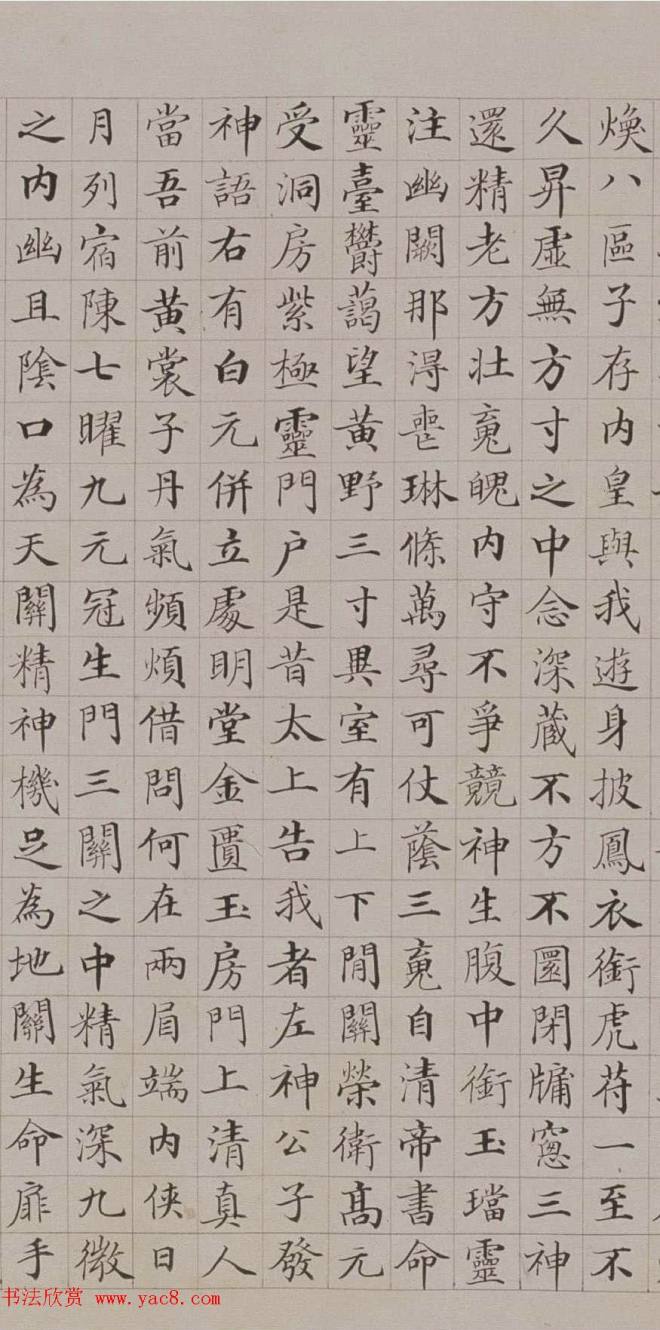 煥八區子存内皇與我遊身披鳳衣銜虎苻一至不
久昇虚無方寸之中念深蔵不方不圎閉牗窓三神
還精老方壮䰟魄内守不爭競神生腹中銜玉璫靈
注幽闕那淂喪琳條萬尋可仗蔭三䰟自清帝書命
靈臺欝藹望黄野三寸異室有上下閒關榮衛髙元
受洞房紫極靈門户是昔太上告我者左神公子發
神語右有白元併立處明堂金匱玉房門上清真人
當吾前黄裳子丹氣頻煩借問何在兩眉端内侠日
月列宿陳七曜九元冠生門三關之中精氣深九微
之内幽且隂口為天關精神機足為地關生命扉手
书法欣赏 www.yac8.com